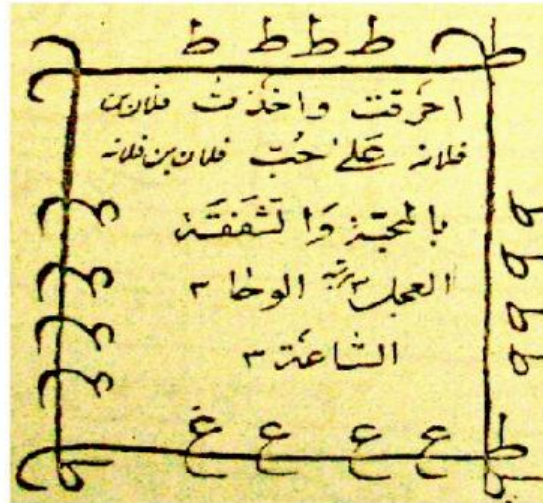 ط ط ط ط ط
احرَقت واخذتُ فلان بن
فلانه عَلىٰ حُبّ فلان بن فلانه
بالمحبّة وَالشَفَقَة
العجل ٣ الوحا ٣
السّاعَة ٣
ع ع ع غ ط